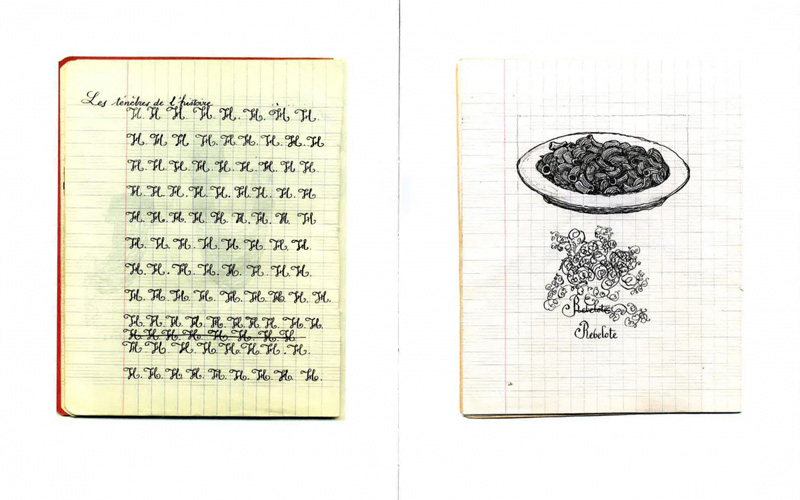 Les ténèbres de l'histoire
H. H H H. H. H. H H.
H. H H H. H. H. H. H. H.
H. H. H. H. H. H. H. H. H.
H. H. H. H. H. H. H. H. H
H. H. H. H. H. H. H. H. H
H. H. H. H. H. H. H. H.
H. H. H. H. H. H. H. H.
H. H. H. H. H. H. H. H. H.
H. H. H. H. H. H. H. H. H. H.
H. H. H. H. H. H. H. H.
H. H. H. H. H. H. H. H. H.
H. H. H. H. H. H. H. H. H.
Rebelote
Rebelote